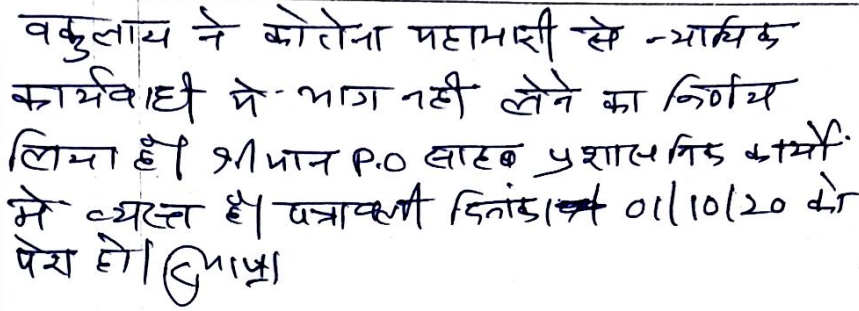 वकुलाय ने कोरोना महामारी से न्यायिक
कार्यवाही मे भाग नही लेने का निर्णय
लिया है। श्रीमान P.O साहब प्रशासनिक कार्यो
मे व्यस्त है। पत्रावली दिनांक 01/10/20 को
पेश हो।